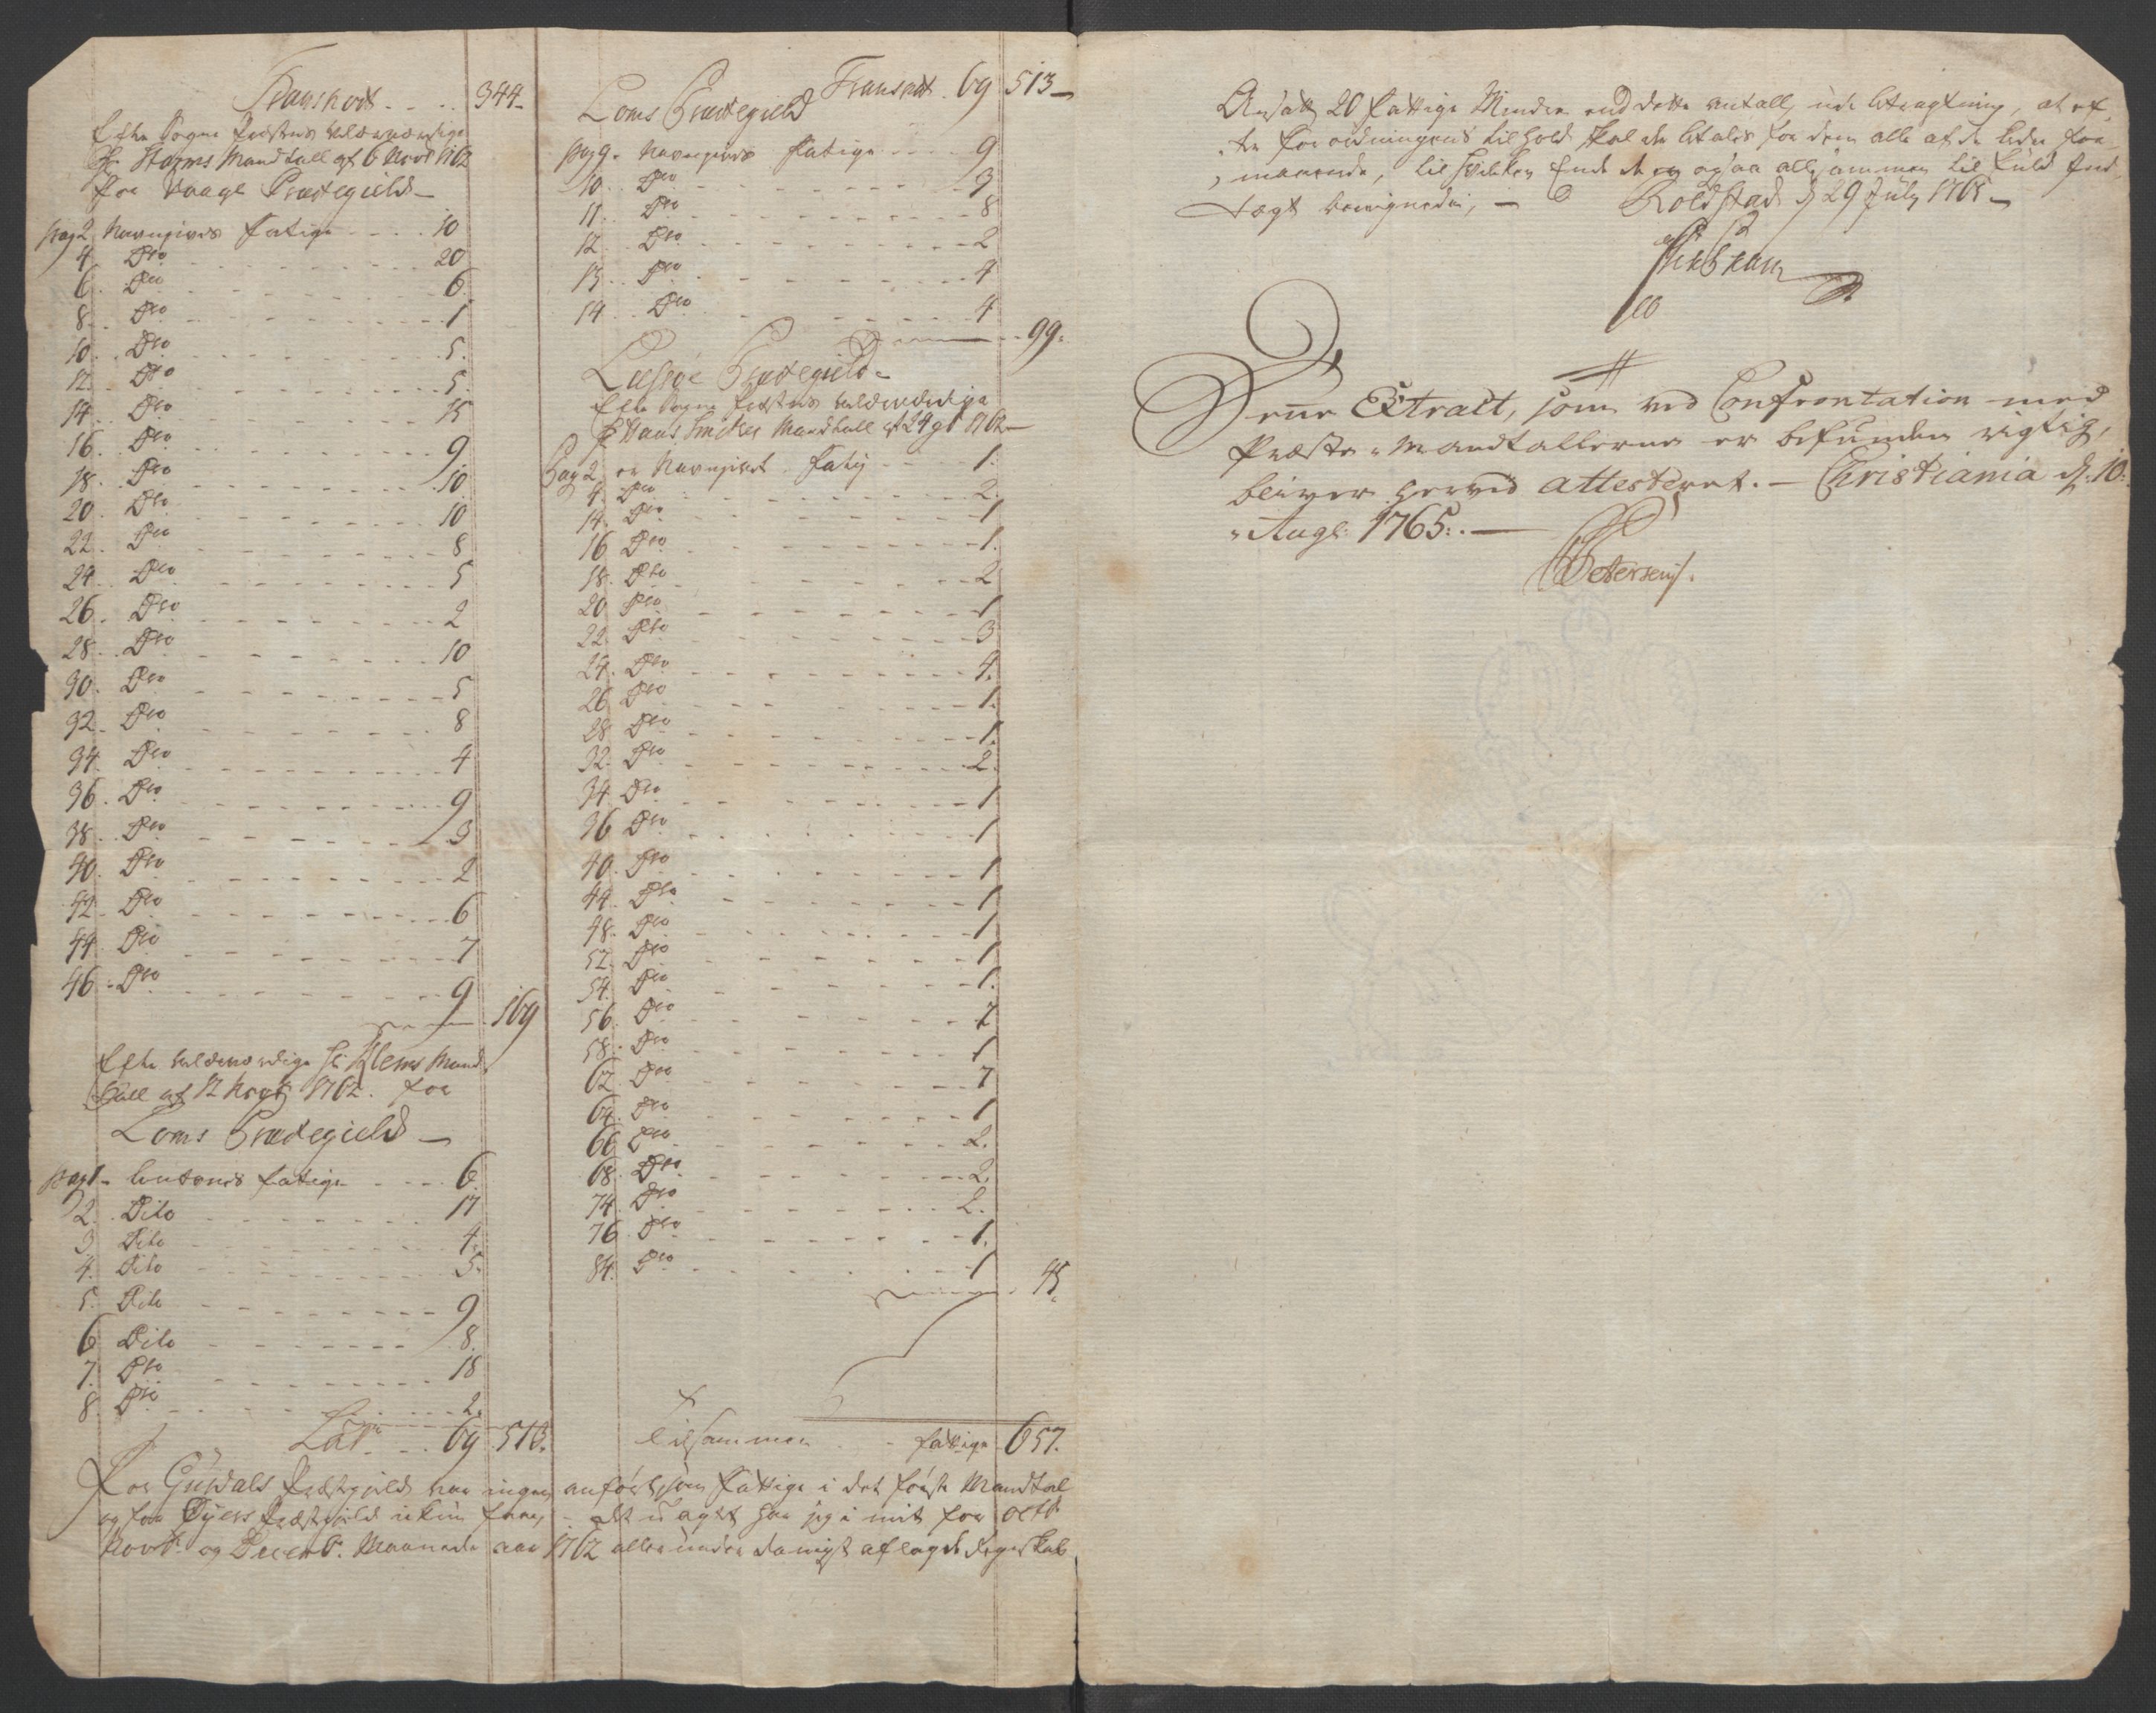 Transport - - - 344 -
Efter Sogne Præstens velærværdige
Hr Storms Mandtall af 6 Novbr 1762
for Vaage Præstegield -
pag 2 Navngives fatige - - - 10
4. Dto - - - 20
6. Dto - - - 6.
8. Dto - - - 1
10. Dto - - - 5.
12. Dto - - - 5.
14. Dto - - - 15
16. Dto - - - 9
18. Dto - - - 10
20. Dto - - - 10
22. Dto - - - 8
24. Dto - - - 5
26. Dto - - - 2
28. Dto - - - 10
30. Dto - - - 5
32. Dto - - - 8
34. Dto - - - 4
36. Dto - - - 9
38. Dto - - - 3
40. Dto - - - 2
42. Dto - - - 6
44. Dto - - - 7
46. Dto - - - 9
169
Efter velærværdige Hr Klems Mand
tall af 12 Novbr 1762. for
Loms Præstegield -
pag 1 - fatige - - - 6
2. Dito - - - 17
3. Dito - - - 4.
4. Dito - - - 5.
5. Dito - - - 9
6 Dito - - - 8.
7. Dto - - - 18
8 Dto - - - 2.
Lat. - - 69 513.
Transport. 69 513 -
Loms Præstegield
pag 9. Navngives fatige - - - 9
10. Dto - - - 3
11. Dto - - - 8
12. Dto - - - 2
13. Dto - - - 4
14. Dto - - - 4
- - 99.
Lessøe Præstegield -
Efter Sogne Præstens velærværdige
Hr Hans Mandtall af 24 1762 -
Pag 2. er Navngivet fatig - - - 1.
4. Dto - - - 2.
14. Dto - - - 1
16 Dto - - - 1.
18. Dto - - - 2
20 Dto - - - 1
22. Dto - - - 3
24. Dto - - - 4.
26 Dto - - - 1.
28 Dto - - - 1.
32. Dto - - - 2.
34. Dto - - - 1
36 Dto - - - 1
40. Dto - - - 1
44. Dto - - - 1
48. Dto - - - 1
52. Dto - - - 1
54. Dto - - - 1.
56. Dto - - - 7
58. Dto - - - 1
62. Dto - - - 7
64. Dto - - - 1
66 Dto - - - 2.
68. Dto - - - 2.
74. Dto - - - 2.
76 Dto - - - 1.
84. Dto - - - 1
45.
Tilsammen - - fattige 657.
For Gusdals Præstegield var ingen anført som fattige i det første Mandtal
og for Øyers Præstegield ikun - det har jeg i mit for octbr
Novbr. og Decembr. Maaneder aar 1762 allerunderdanigst aflagde Regnskab
Ansatt 20 fattige Mindre end dette antall, ude betragtning, at ef-
ter forordningens tilhold skal der betales for dem alle af de
formuende, til hvilken Ende de og ogsaa allesammen til fuld
- Roldstad d 29 July 1765 -
Denne Extract, som ved Confrontation med
Præste-Mandtallerne er befunden rigtig,
bliver herved attesteret. - Christiania d: 10:
Augs: 1765. -
Petersen.